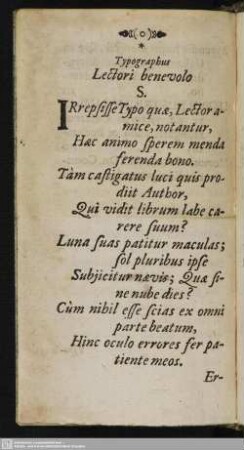 *
Typographus
Lectori benevolo
S.
IRrepsisse Typo quæ, Lector a-
mice, notantur,
Hæc animo sperem menda
ferenda bono.
Tàm castigatus luci quis pro-
diit Author,
Qui vidit librum labe ca-
rere suum?
Luna suas patitur maculas;
sol pluribus ipse
Subjicitur nævis; Quæ si-
ne nube dies?
Cùm nihil esse scias ex omni
parte beatum,
Hinc oculo errores fer pa-
tiente meos.
Er-